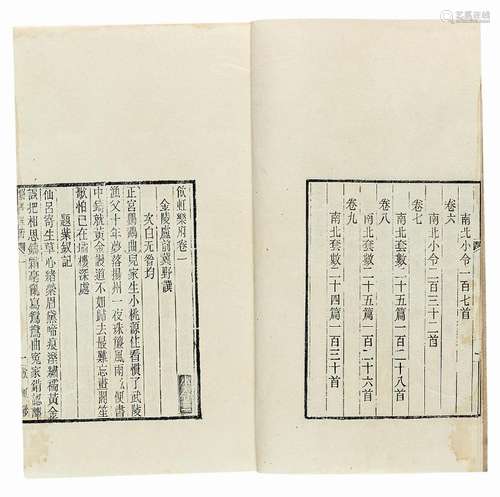 南北小令一百七首
卷六
南北小令二百三十二首
卷七
南北套數二十五篇一百二十八首
卷八
南北套數二十五篇一百二十六首
卷九
南北套數二十四篇一百三十首
飮虹樂府卷一
金陵盧前冀野譔
次白无咎均
正宮鸚鵡曲兒家生小桃源住看慣了武陵
漁父十年夢落揚州一夜珠簾風雨么便書
中鑄就黃金謾道不如歸去最難忘畫閣笙
歌怕已在城樓深處
題葉敍記
仙呂寄生草心緒縈眉黛啼痕漬繡襦黃金
誤把相思鑄霜毫亂寫鴛鴦曲冤家錯認